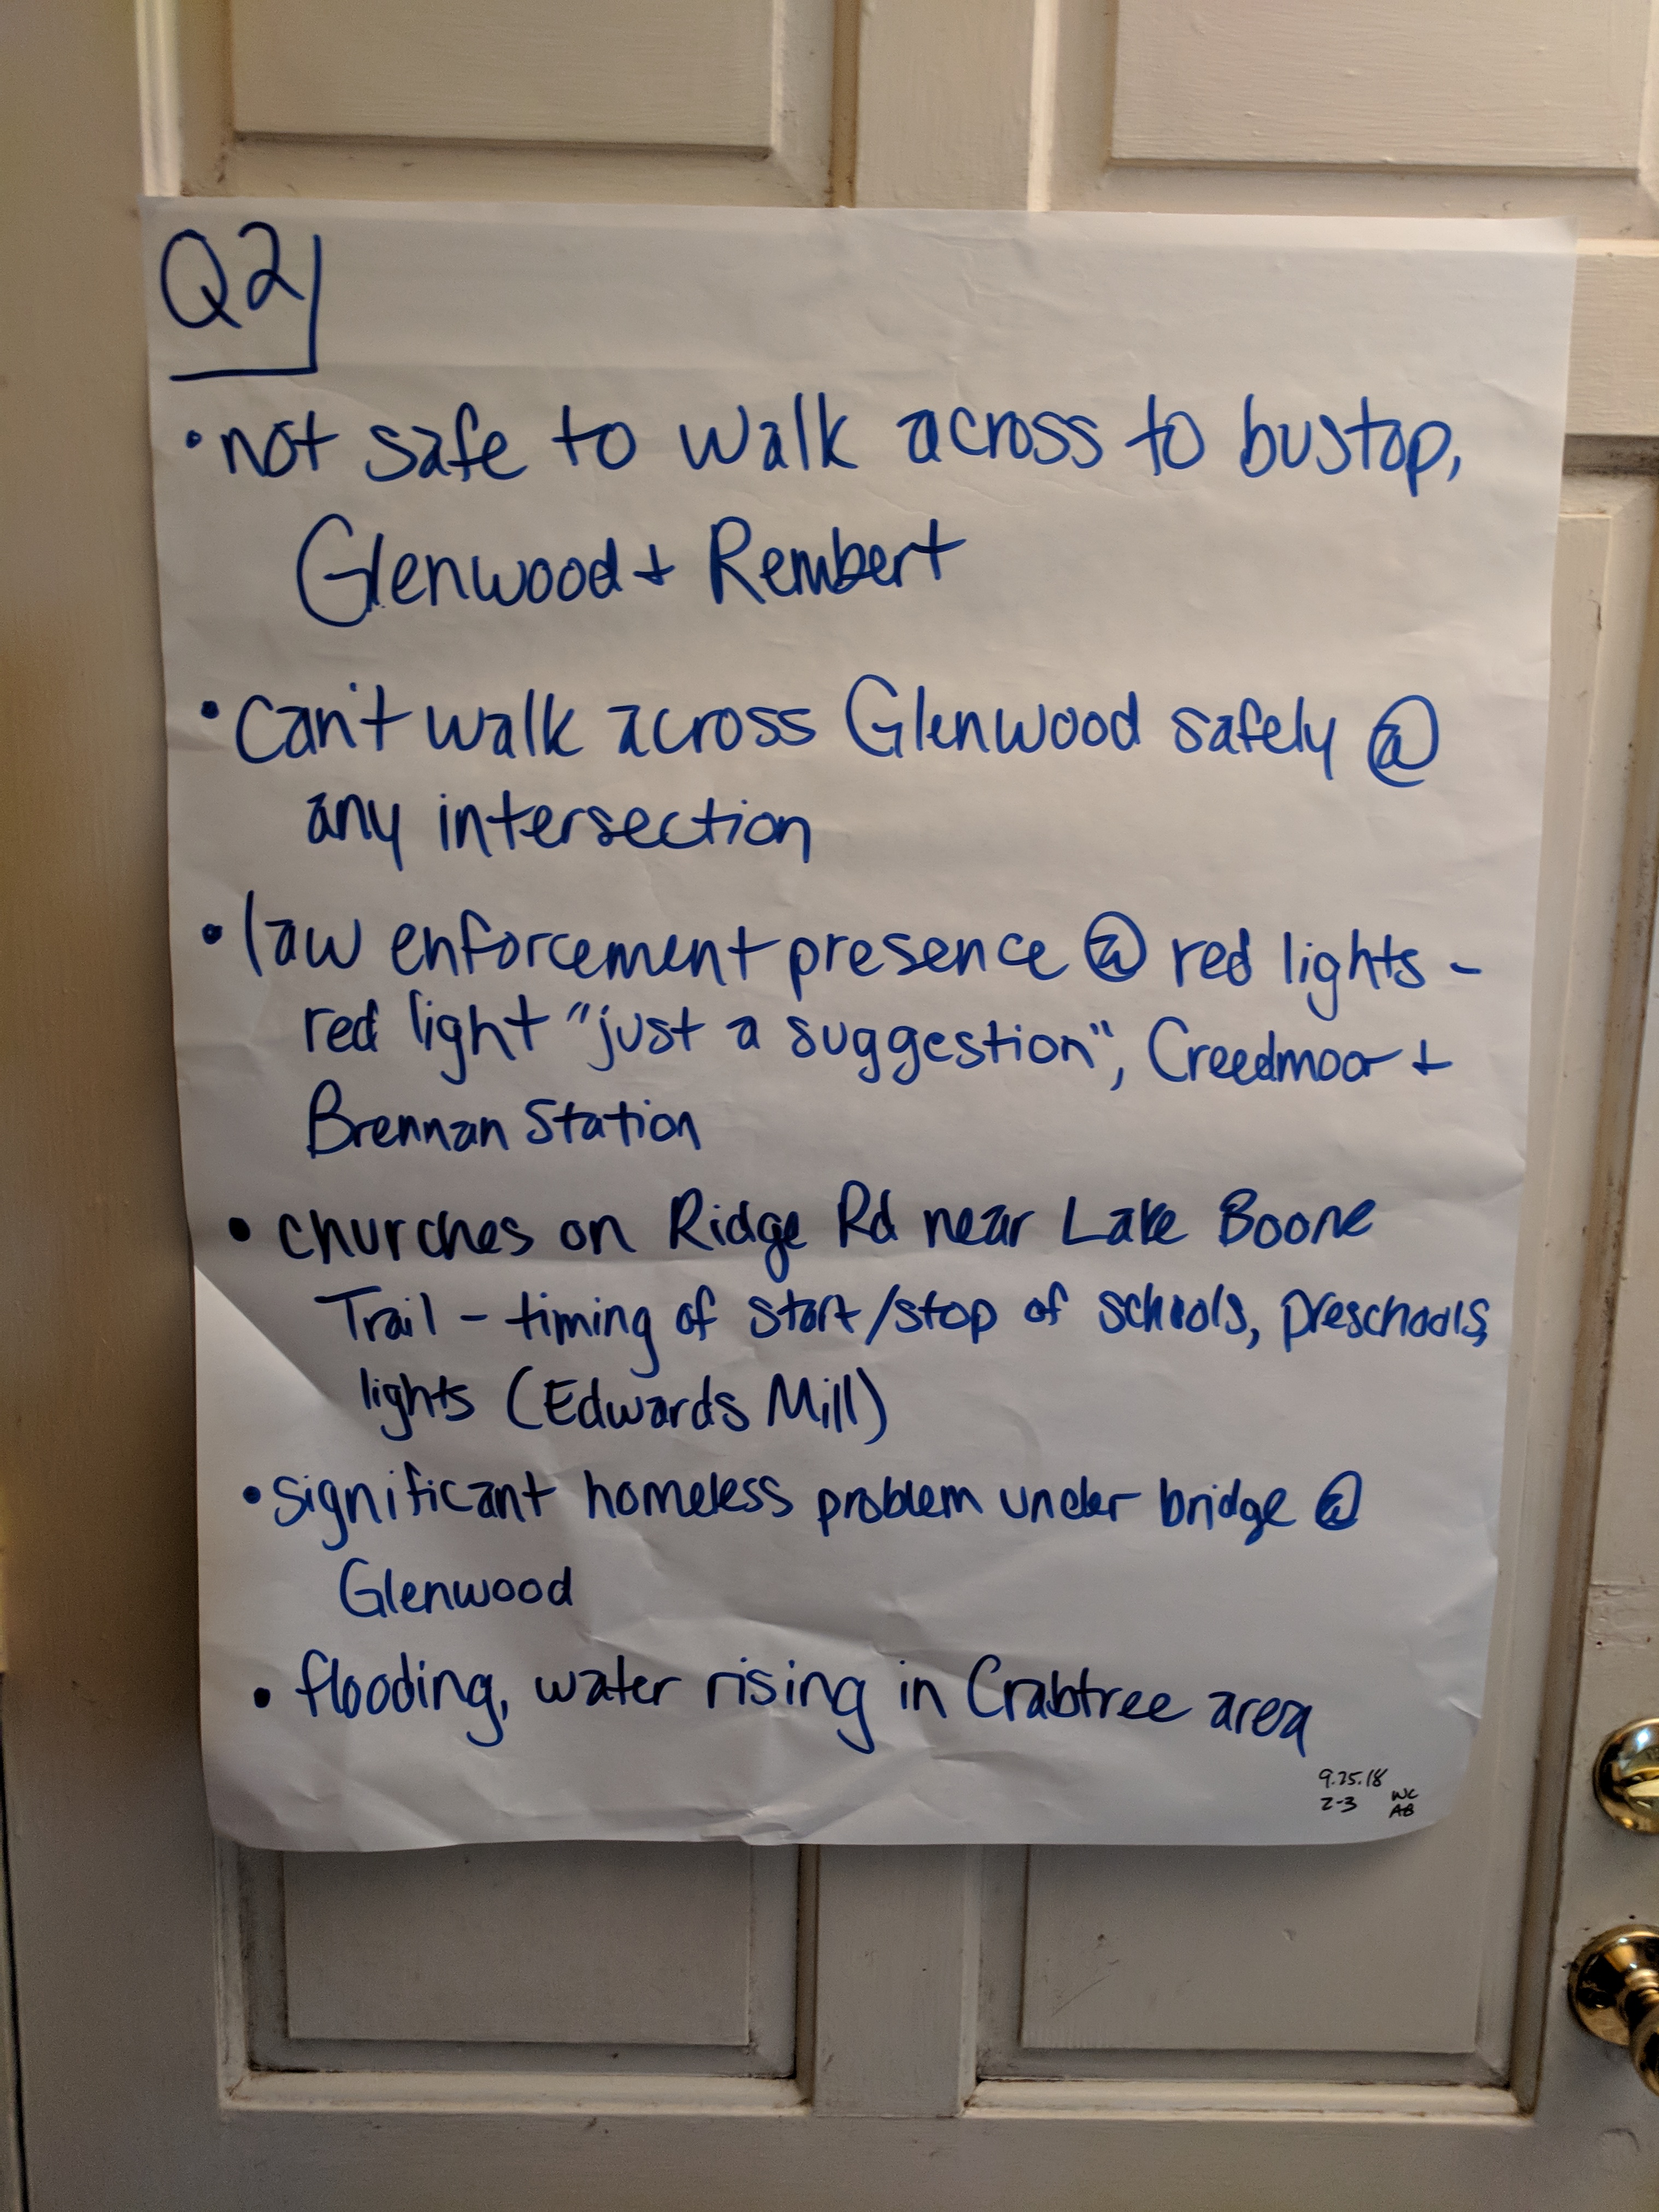 Q2
• not safe to walk across to bustop,
Glenwood + Rembert
• can't walk across Glenwood safely @
any intersection
• law enforcement presence @ red lights -
red light "just a suggestion", Creedmoor +
Brennan Station
• churches on Ridge Rd near Lake Boone
Trail - timing of start/stop of schools, preschools,
lights (Edwards Mill)
• significant homeless problem under bridge @
Glenwood
• flooding, water rising in Crabtree area
9.25.18
2-3 WC
AB